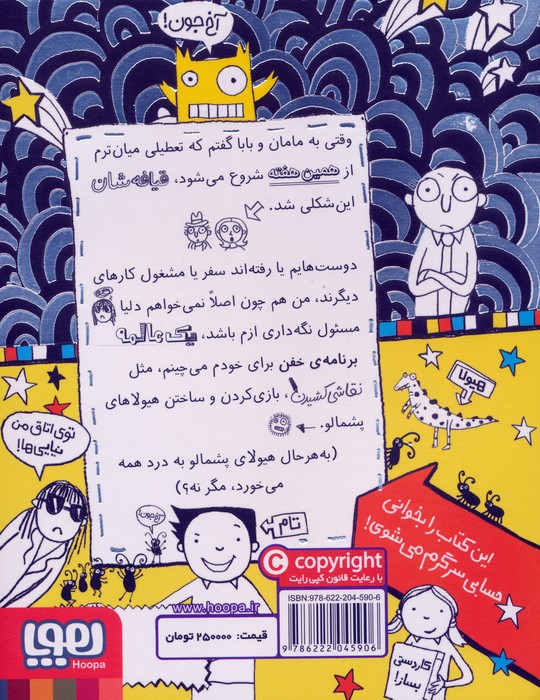 آخ جون!
وقتی به مامان و بابا گفتم که تعطیلی میان‌ترم
از همین هفته شروع می‌شود، قیافه‌شان
این‌شکلی شد.
دوست‌هایم یا رفته‌اند سفر یا مشغول کارهای
دیگرند، من هم چون اصلاً نمی‌خواهم دلیا
مسئول نگه‌داری ازم باشد، یک عالمه
برنامه‌ی خفن برای خودم می‌چینم، مثل
نقاشی‌کشیدن، بازی‌کردن و ساختن هیولاهای
پشمالو.
(به‌هرحال هیولای پشمالو به درد همه
می‌خورد، مگر نه؟)
هیولا
توی اتاق من
نیایی‌ها!
آخ‌جون!
تام
این کتاب را بخوانی
حسابی سرگرم می‌شوی!
کاردستی
بساز!
© copyright
با رعایت قانون کپی‌رایت
ISBN:978-622-204-590-6
9 786222 045906
www.hoopa.ir
قیمت: ۲۵۰۰۰۰ تومان
هوپا
Hoopa